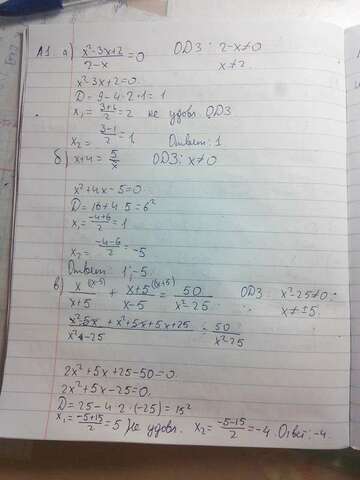 А1. а) (x²-3x+2)/(2-x) = 0 ОДЗ: 2-x≠0
x≠2.
x²-3x+2=0.
D = 9-4·2·1=1
x₁ = (3+1)/2 = 2 не удовл. ОДЗ
x₂ = (3-1)/2 = 1. Ответ: 1
б) x+4 = 5/x ОДЗ: x≠0
x²+4x-5=0
D = 16+4·5=6²
x₁ = (-4+6)/2 = 1
x₂ = (-4-6)/2 = -5
Ответ: 1; -5.
в) x/(x+5) (x-5) + (x+5)/(x-5) (x+5) = 50/(x²-25) ОДЗ: x²-25≠0
x≠±5.
(x²-5x+x²+5x+5x+25)/(x²-25) = 50/(x²-25)
2x²+5x+25-50=0.
2x²+5x-25=0.
D = 25-4·2·(-25)=15²
x₁ = (-5+15)/2 = 5 Не удовл. x₂ = (-5-15)/2 = -4. Ответ: -4.